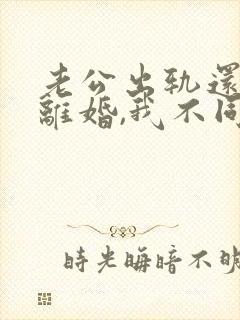 老公出轨還
離婚,我不同
時光晦暗不明